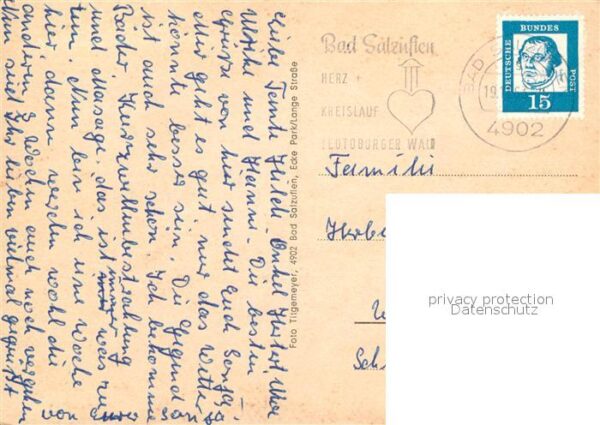 Liebe Tante Hilde - Onkel Herbert Uwe
Ulrike und Hanni - Die besten
Grüsse von hier sendet Euch Sonja
Mir geht es gut nur das Wetter
könnte besser sein. Die Gegend
ist auch sehr schön. Ich bekomme
Bäder, Kurzwellenbestrahlung
und Massage, das ist immer was
Nun bin ich eine Woche
hier, dann werden wohl die
anderen 3 Wochen auch noch vergehen
Nun seid Ihr lieben vielmal gegrüsst
von Sonja
Foto Tilgemeyer, 4902 Bad Salzuflen, Ecke Park/Lange Straße
Bad Salzuflen
HERZ +
KREISLAUF
TEUTOBURGER WALD
BAD
19.
4902
DEUTSCHE BUNDESPOST
15
Familie
privacy protection
Datenschutz